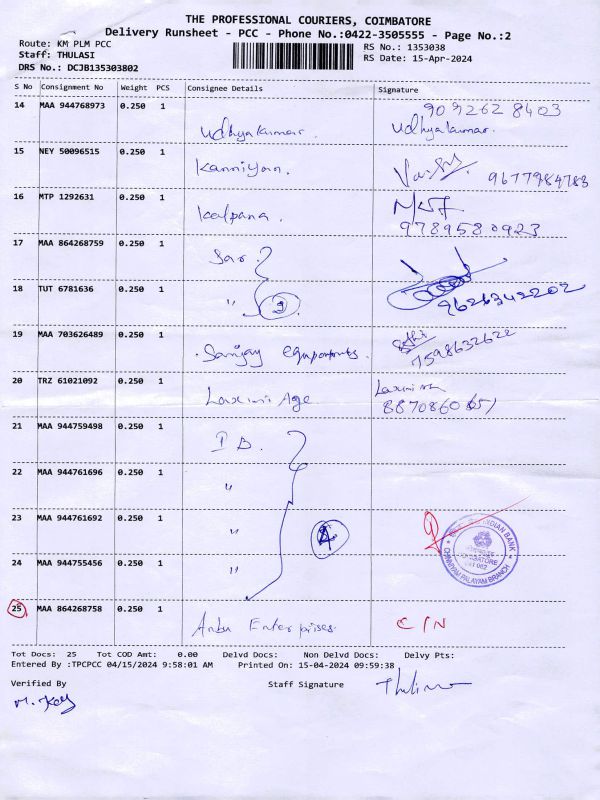 THE PROFESSIONAL COURIERS, COIMBATORE
Delivery Runsheet - PCC - Phone No.:0422-3505555 - Page No.:2
Route: KM PLM PCC
RS No.: 1353038
Staff: THULASI
RS Date: 15-Apr-2024
DRS No.: DCJB135303802
S No Consignment No Weight PCS Consignee Details Signature
14 MAA 944768973 0.250 1
9092628403
Udhyakumar. Udhyakumar.
15 NEY 50096515 0.250 1
Kanniyan. 9677984783
16 MTP 1292631 0.250 1
Kalpana.
9789580923
17 MAA 864268759 0.250 1
Sar.
18 TUT 6781636 0.250 1
" 2 9626342202
19 MAA 703626489 0.250 1
Sanjay equpments. 7598632622
20 TRZ 61021092 0.250 1
Laxmi Age
21 MAA 944759498 0.250 1
I B.
22 MAA 944761696 0.250 1
"
23 MAA 944761692 0.250 1
" 4
INDIAN BANK
COIMBATORE
CHINNIYAM PALAYAM BRANCH
24 MAA 944755456 0.250 1
"
25 MAA 864268758 0.250 1
Anbu Enterprises. C/N
Tot Docs: 25 Tot COD Amt: 0.00 Delvd Docs: Non Delvd Docs: Delvy Pts:
Entered By :TPCPCC 04/15/2024 9:58:01 AM Printed On: 15-04-2024 09:59:38
Verified By Staff Signature